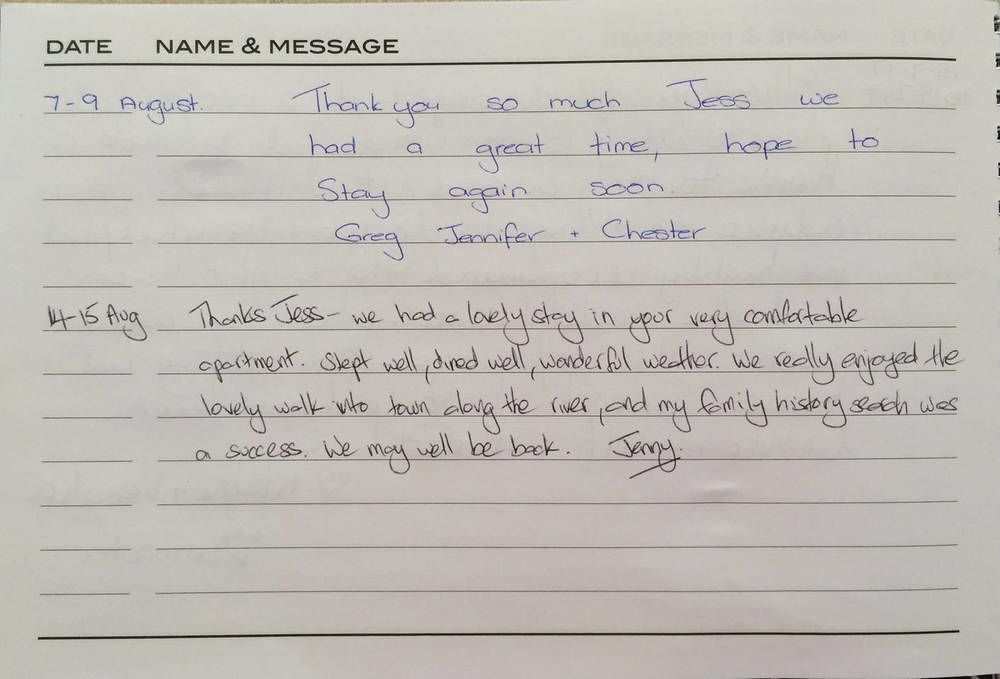 DATE NAME & MESSAGE
7-9 August. Thank you so much Jess we
had a great time, hope to
Stay again soon.
Greg Jennifer + Chester
14-15 Aug Thanks Jess - we had a lovely stay in your very comfortable
apartment. Slept well, dined well, wonderful weather. We really enjoyed the
lovely walk into town along the river, and my family history search was
a success. We may well be back. Jenny.